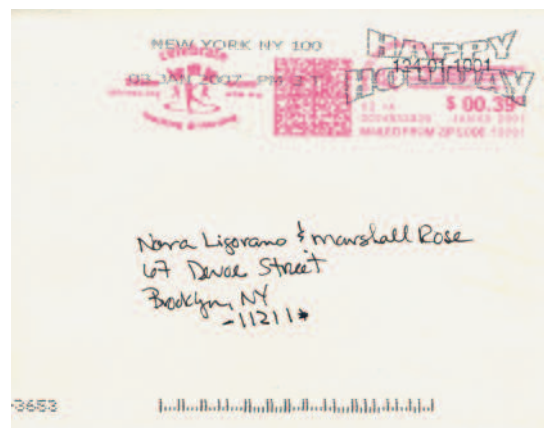 NEW YORK NY 100
HAPPY
HOLIDAY
03 JAN 2007 PM
$ 00.39
MAILED FROM ZIP CODE
Nora Ligorano & Marshall Rose
67 Devoe Street
Brooklyn, NY
-11211*
-3653